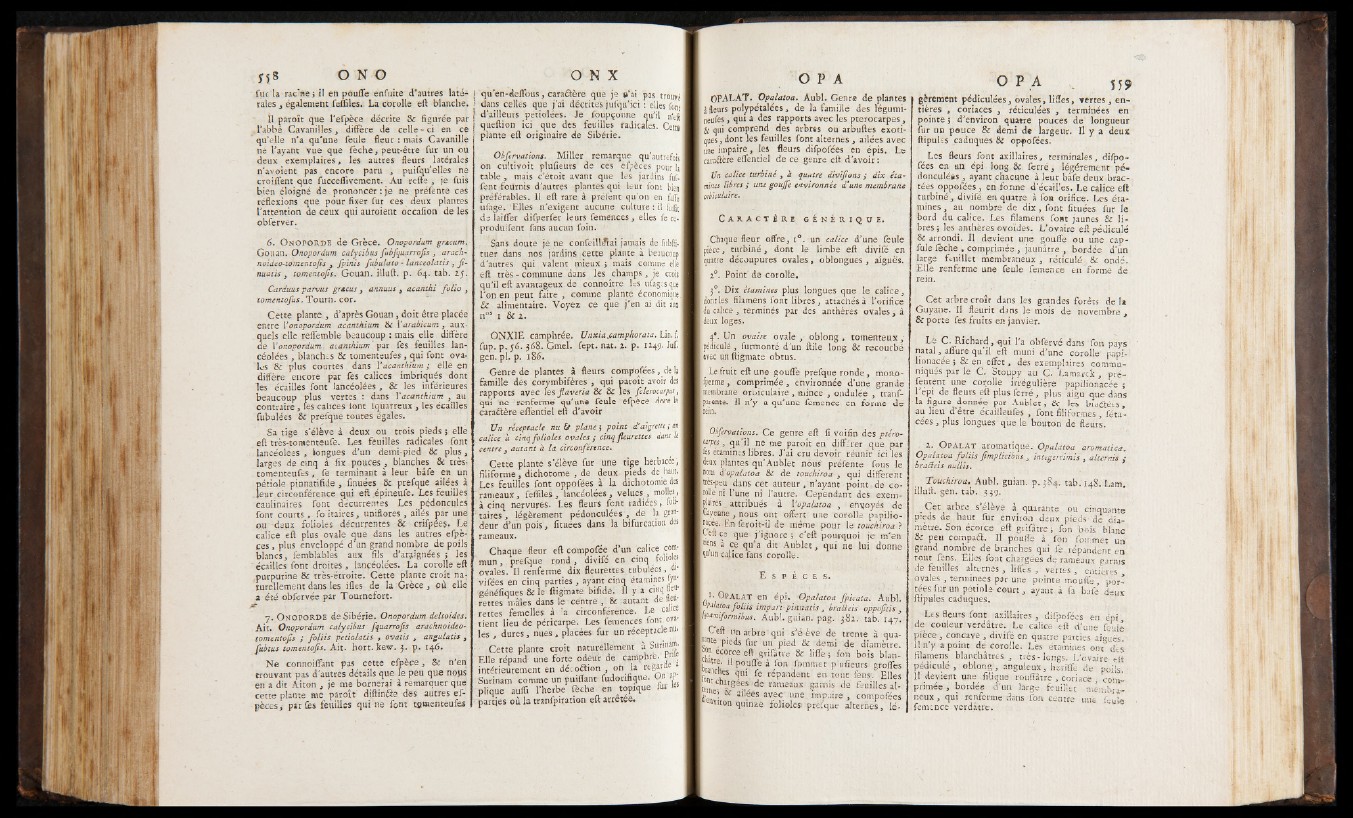 558 ONO
sur la racine; il en pousse ensuite d'autres laté-
rales, également sessiles. La corolle est blanche.
Il paroît que l'espèce décrite & figurée par
l'abbé Cavanilles, diffère de celle-ci en ce
qu'elle n'a qu'une seule fleur : mais Cavanille
ne l'ayant vue que sèche, peut-être sur un ou
deux exemplaires, les autres fleurs latérales
n'avoient pas encore paru, puisqu'elles ne
croissent que successivement. Au reste, je suis
bien éloigné de prononcer : je ne présente ces
réflexions que pour fixer sur ces deux plantes
l'attention de ceux qui auroient occasion de les
observer.
6. ONOPORDE de Grèce. Onopordum græcum.
Gouan. Onopordum calycibus subsquarrosis, arach-
noideo-tomentosis, spinis subulato-lanceolatis, si-
nuatis, tomentosis. Gouan. illust. p. 64. tab. 25.
Carduus parvus græcus, annuus, acanthi folio,
tomentosus. Tourn. cor.
Cette plante, d'après Gouan, doit être placée
entre l'onopordum acanthium & l'arabicum, aux-
quels elle ressemble beaucoup : mais elle diffère
de l'onopordum acanthium par ses feuilles lan-
céolées, blanches & tomenteuses, qui sont ova-
les & plus courtes dans l'acanthium ; elle en
diffère encore par ses calices imbriqués dont
les écailles sont lancéolées, & les inférieures
beaucoup plus vertes : dans l'acanthium, au
contraire, ses calices sont squarreux, les écailles
subulées & presque toutes égales.
Sa tige s'élève à deux ou trois pieds ; elle
est très-tomenteuse. Les feuilles radicales sont
lancéolées, longues d'un demi-pied & plus,
larges de cinq à six pouces, blanches & très-
tomenteuses, se terminant à leur base en un
pétiole pinnatifide, sinuées & presque ailées à
leur circonférence qui est épineuse. Les feuilles
caulinaires sont décurrentes. Les pédoncules
sont courts, solitaires, uniflores, ailés par une
ou deux folioles décurrentes & crispées. Le
calice est plus ovale que dans les autres espè-
ces, plus enveloppé d'un grand nombre de poils
blancs, semblables aux fils d'araignées ; les
écailles sont droites, lancéolées. La corolle est
purpurine & très-étroite. Cette plante croît na-
turellement dans les isles de la Grèce, où elle
a été observée par Tournefort.
7. ONOPORDE de Sibérie. Onopordum deltoides.
Ait. Onopordum calycibus squarrosis arachnoideo-
tomentosis ; foliis petiolatis, ovatis, angulatis,
subtus tomentosis. Ait. hort. kew. 3. p. 146.
Ne connoissant pas cette espèce, & n'en
trouvant pas d'autres détails que le peu que nous
en a dit Aiton, je me bornerai à remarquer que
cette plante me paroît distincte des autres es-
pèces, par ses feuilles qui ne sont tomenteuses
ONX
qu'en-dessous, caractère que je n'ai pas trouvé
dans celles que j'ai décrites jusqu'ici : elles sont
d'ailleurs petiolées. Je soupçonne qu'il n'est
question ici que des feuilles radicales. Cette
plante est originaire de Sibérie.
Observations. Miller remarque qu'autrefois
on cultivoit plusieurs de ces espèces pour la
table, mais c'étoit avant que les jardins fus-
sent fournis d'autres plantes qui leur sont bien
préférables. Il est rare à présent qu'on en fasse
usage. Elles n'exigent aucune culture : il suffit
de laisser disperser leurs semences, elles se re-
produisent sans aucun soin.
Sans doute je ne conseillerai jamais de substi-
tuer dans nos jardins cette plante à beaucoup
d'autres qui valent mieux ; mais comme elle
est très-commune dans les champs, je crois
qu'il est avantageux de connoître les usages que
l'on en peut faire, comme plante économique
& alimentaire. Voyez ce que j'en ai dit aux
nos 1 & 2.
ONXIE camphrée. Unxia camphorata. Lin. f.
sup. p. 56. 368. Gmel. sept. nat. 2. p. 1249. Jus.
gen. pl. p. 186.
Genre de plantes à fleurs composées, de la
famille des corymbifères, qui paroît avoir des
rapports avec les flaveria & les sclerocarpus,
qui ne renferme qu'une seule espèce dont le
caractère essentiel est d'avoir
Un réceptacle nu & plane ; point d'aigrette ; un
calice à cinq folioles ovales ; cinq fleurettes dans le
centre, autant à la circonférence.
Cette plante s'élève sur une tige herbacée,
filiforme, dichotome, de deux pieds de haut.
Les feuilles sont opposées à la dichotomie des
rameaux, sessiles, lancéolées, velues, molles,
à cinq nervures. Les fleurs sont radiées, soli-
taires, légèrement pédonculées, de la gran-
deur d'un pois, situées dans la bifurcation des
rameaux.
Chaque fleur est composée d'un calice com-
mun, presque rond, divisé en cinq folioles
ovales. Il renferme dix fleurettes tubulées, di-
visées en cinq parties, ayant cinq étamines syn-
génésiques & le stigmate bifide. Il y a cinq fleu-
rettes mâles dans le centre, & autant de fleu-
rettes femelles à la circonférence. Le calice
tient lieu de péricarpe. Les semences sont ova-
les, dures, nues, placées sur un réceptacle nu.
Cette plante croît naturellement à Surinam.
Elle répand une forte odeur de camphre. Prise
intérieurement en décoction, on la regarde à
Surinam comme un puissant sudorifique. On ap-
plique aussi l'herbe sèche en topique sur les
parties où la transpiration est arrêtée.
OPA
OPALAT. Opalatoa. Aubl. Genre de plantes
à fleurs polypétalées, de la famille des légumi-
neuses, qui a des rapports avec les pterocarpes,
& qui comprend des arbres ou arbustes exoti-
ques, dont les feuilles sont alternes, ailées avec
une impaire, les fleurs disposées en épis. Le
caractère essentiel de ce genre est d'avoir :
Un calice turbiné, à quatre divisions ; dix éta-
mines libres ; une gousse environnée d'une membrane
orbiculaire.
CARACTÈRE GÉNÉRIQUE.
Chaque fleur offre, 1°. un calice d'une seule
pièce, turbiné, dont le limbe est divisé en
quatre découpures ovales, oblongues, aiguës.
2°. Point de corolle.
3°. Dix étamines plus longues que le calice,
dont les filamens sont libres, attachés à l'orifice
du calice, terminés par des anthères ovales, à
deux loges.
4°. Un ovaire ovale, oblong, tomenteux,
pédiculé, surmonté d'un stile long & recourbé
avec un stigmate obtus.
Le fruit est une gousse presque ronde, mono-
sperme, comprimée, environnée d'une grande
membrane orbiculaire, mince, ondulée, transf-
parente. Il n'y a qu'une semence en forme de
rein.
Observations. Ce genre est si voisin des ptéro-
carpes, qu'il ne me paroît en différer que par
ses étamines libres. J'ai cru devoir réunir ici les
deux plantes qu'Aublet nous présente sous le
nom d'opalatoa & de touchiroa, qui diffèrent
très-peu dans cet auteur, n'ayant point de co-
rolle ni l'une ni l'autre. Cependant des exem-
plaires attribués à l'opalatoa, envoyés de
Cayenne, nous ont offert une corolle papilio-
nacée. En seroit-il de même pour le touchiroa ?
C'est ce que j'ignore ; c'est pourquoi je m'en
tiens à ce qu'a dit Aublet, qui ne lui donne
qu'un calice sans corolle.
ESPÈCES.
1. OPALAT en épi. Opalatoa spicata. Aubl.
Opalatoa foliis impari pinnatis, bracteis oppositis,
squamiformibus. Aubl. guian. pag. 382. tab. 147.
C'est un arbre qui s'élève de trente à qua-
rante pieds sur un pied & demi de diamètre.
Son écorce est grisâtre & lisse ; son bois blan-
châtre. Il pousse à son sommet plusieurs grosses
branches qui se répandent en tout sens. Elles
sont chargées de rameaux garnis de feuilles al-
ternes, & ailées avec une impaire, composées
d'environ quinze folioles presque alternes, lé-
OPA 559
gèrement pédiculées, ovales, lisses, vertes, en-
tières, coriaces, réticulées, terminées en
pointe ; d'environ quatre pouces de longueur
sur un pouce & demi de largeur. Il y a deux
stipules caduques & opposées.
Les fleurs sont axillaires, terminales, dispo-
sées en un épi long & serré, légérement pé-
donculées, ayant chacune à leur base deux brac-
tées opposées, en forme d'écailles. Le calice est
turbiné, divisé en quatre à son orifice. Les éta-
mines, au nombre de dix, sont situées sur le
bord du calice. Les filamens sont jaunes & li-
bres ; les anthères ovoïdes. L'ovaire est pédiculé
& arrondi. Il devient une gousse ou une cap-
sule sèche, comprimée, jaunâtre, bordée d'un
large feuillet membraneux, réticulé & ondé.
Elle renferme une seule semence en forme de
rein.
Cet arbre croît dans les grandes forêts de la
Guyane. Il fleurit dans le mois de novembre,
& porte ses fruits en janvier.
Le C. Richard, qui l'a observé dans son pays
natal, assure qu'il est muni d'une corolle papi-
lionacée ; & en effet, des exemplaires commu-
niqués par le C. Stoupy au C. Lamarck, pré-
sentent une corolle irrégulière papilionacée ;
l'épi de fleurs est plus serré, plus aigu que dans
la figure donnée par Aublet, & les bractées,
au lieu d'être écailleuses, sont filiformes, séta-
cées, plus longues que le bouton de fleurs.
2. OPALAT aromatique. Opalatoa aromatica.
Opalatoa foliis simplicibus, integerrimis, alternis ;
bracteis nullis.
Touchiroa. Aubl. guian. p. 384. tab. 148. Lam.
illust. gen. tab. 339.
Cet arbre s'élève à quarante ou cinquante
pieds de haut sur environ deux pieds de dia-
mètre. Son écorce est grisâtre ; son bois blanc
& peu compact. Il pousse à son sommet un
grand nombre de branches qui se répandent en
tout sens. Elles sont chargées de rameaux garnis
de feuilles alternes, lisses, vertes, entières,
ovales, terminées par une pointe mousse, por-
tées sur un petiole court, ayant à la base deux
stipules caduques.
Les fleurs sont axillaires, disposées en épi,
de couleur verdâtre. Le calice est d'une seule
pièce, concave, divisé en quatre parties aiguës.
Il n'y a point de corolle. Les étamines ont des
filamens blanchâtres, très-longs. L'ovaire est
pédiculé, oblong, anguleux, hérissé de poils.
Il devient une silique roussâtre, coriace, com-
primée, bordée d'un large feuillet membra-
neux, qui renferme dans son centre une seule
semence verdâtre.